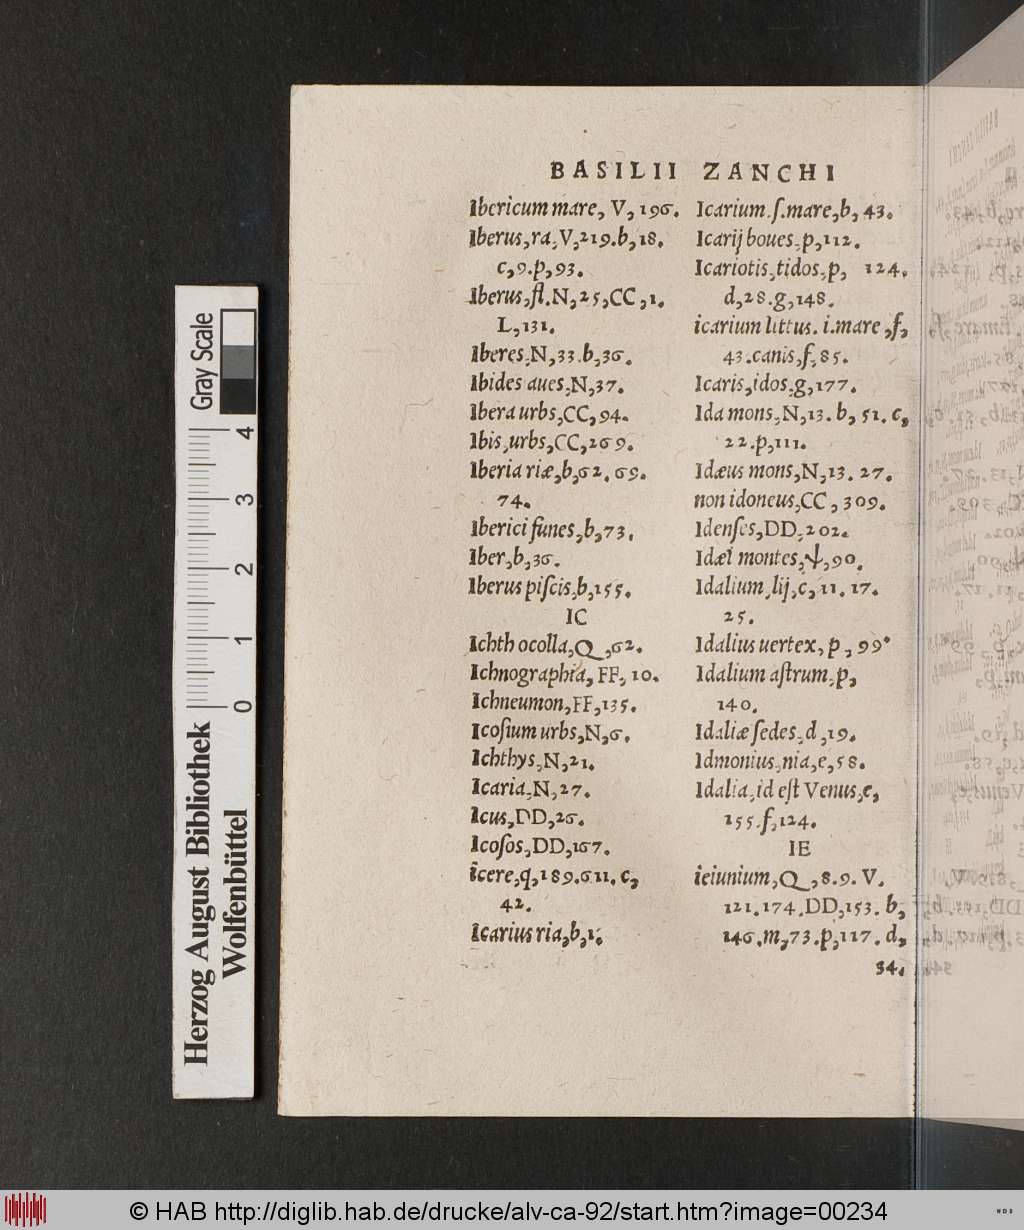 BASILII ZANCHI
Ibericum mare, V, 196.
Iberus, ra, V, 219. b, 18.
c, 9. p, 93.
Iberus, fl. N, 25, CC, 1.
L, 131.
Iberes, N, 33. b, 36.
Ibides aues, N, 37.
Ibera urbs, CC, 94.
Ibis, urbs, CC, 269.
Iberia riæ, b, 62. 69.
74.
Iberici funes, b, 73.
Iber, b, 36.
Iberus piſcis, b, 155.
IC
Ichth ocolla, Q, 62.
Ichnographia, FF, 10.
Ichneumon, FF, 135.
Icoſium urbs, N, 6.
Ichthys, N, 21.
Icaria, N, 27.
Icus, DD, 26.
Icoſos, DD, 167.
icere, q, 189. 611. c,
42.
Icarius ria, b, 1.
Icarium. ſ. mare, b, 43.
Icarij boues, p, 112.
Icariotis, tidos, p, 124.
d, 28. g, 148.
icarium littus. i. mare, f,
43. canis, f, 85.
Icaris, idos, g, 177.
Ida mons, N, 13. b, 51. c,
22. p, 111.
Idæus mons, N, 13. 27.
non idoneus, CC, 309.
Idenſes, DD, 202.
Idæi montes, ψ, 90.
Idalium, lij, c, 11. 17.
25.
Idalius uertex, p, 99.
Idalium aſtrum, p,
140.
Idaliæ ſedes, d, 19.
Idmonius, nia, e, 58.
Idalia, id eſt Venus, e,
155. f, 124.
IE
ieiunium, Q, 8. 9. V.
121. 174. DD, 153. b,
146. m, 73. p, 117. d,
34.
Gray Scale
0 1 2 3 4
Herzog August Bibliothek
Wolfenbüttel
© HAB http://diglib.hab.de/drucke/alv-ca-92/start.htm?image=00234